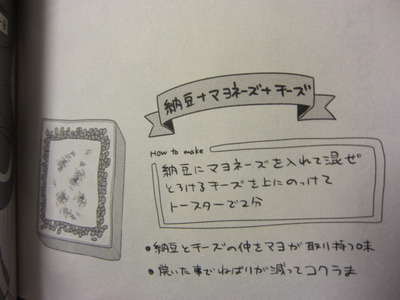 納豆+マヨネーズ+チーズ
How to make
納豆にマヨネーズを入れて混ぜ
とろけるチーズを上にのっけて
トースターで2分
•納豆とチーズの仲をマヨが取り持つ味
•焼いた事でねばりが減ってコクうま